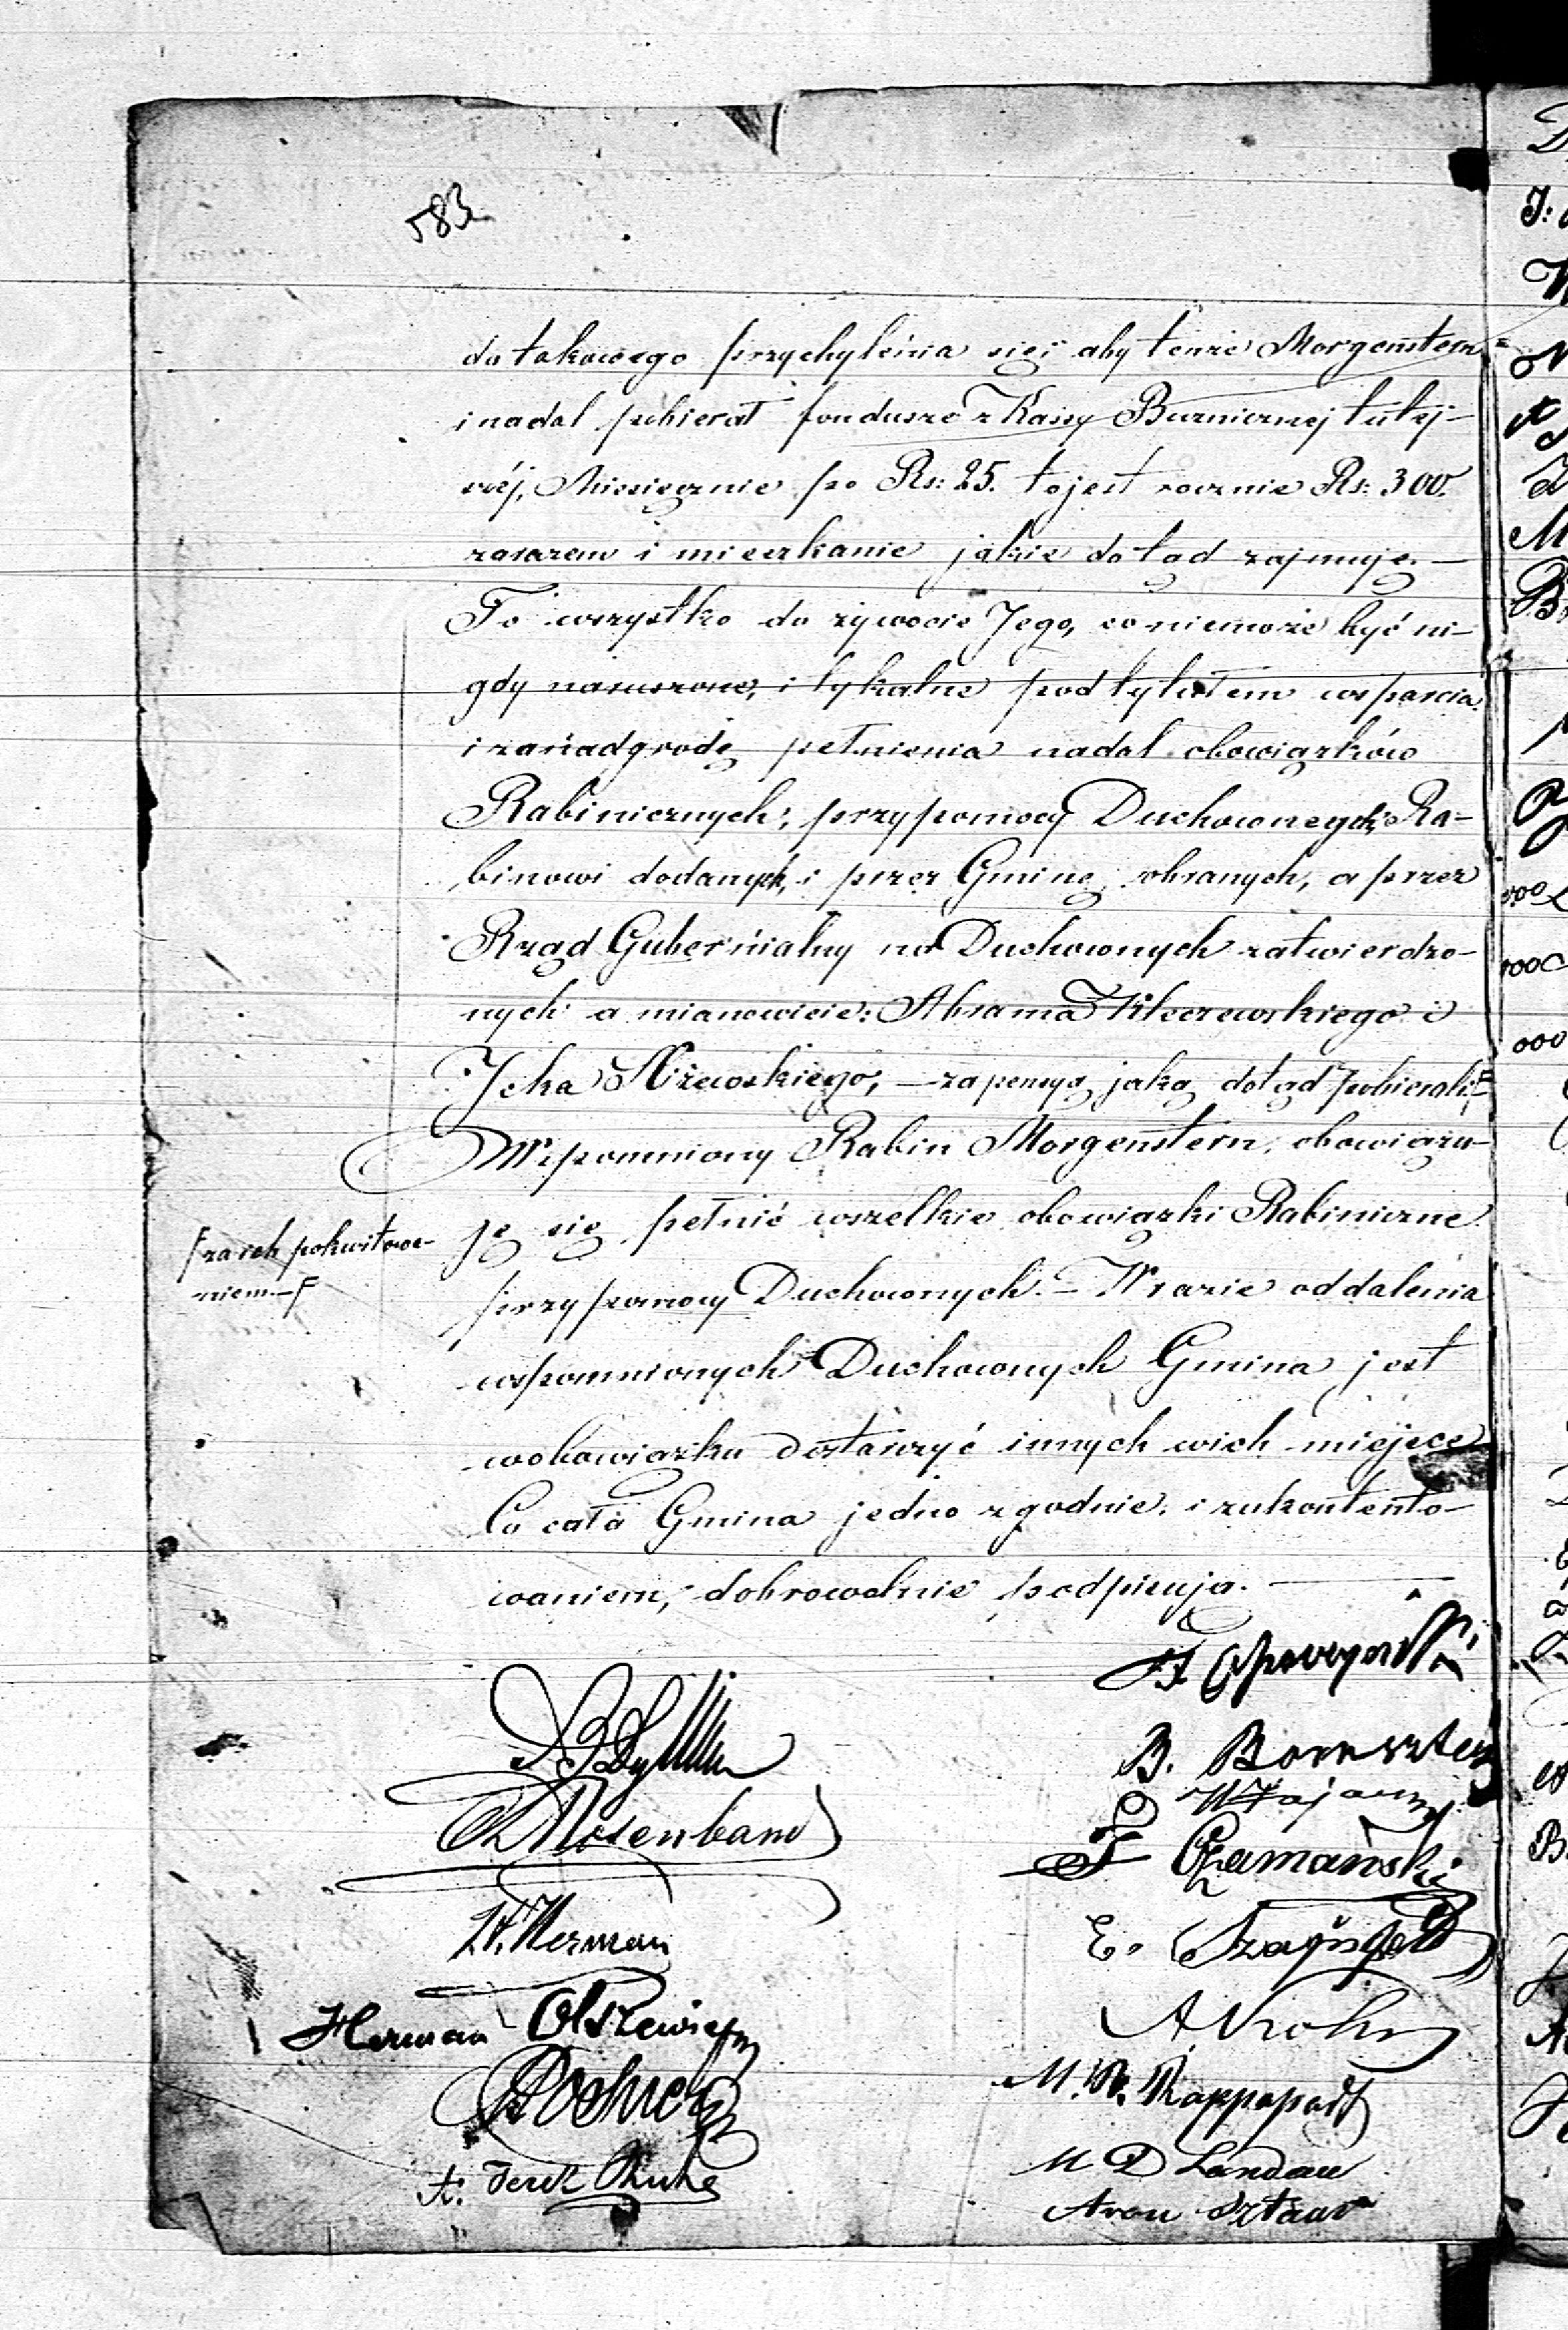 583
do takowego przychylenia się i aby tenże Morgenstern
i nadal pobierał fundusze z Kassy Bużnicznej tutéj-
széj, Miesięcznie po Rs: 25. to jest rocznie Rs: 300.
zarazem i mieszkanie jakie dotąd zajmuje. —
To wszystko do żywocie Jego, co niemoże być ni-
gdy naruszone, i tykalne pod tytułem wsparcia
i zanadgrodę pełnienia nadal obowiązków
Rabinicznych, przy pomocy Duchownych Ra-
binowi dodanych, i przez Gminę obranych, a przez
Rząd Gubernialny na Duchownych zatwierdzo-
nych a mianowicie: Abrama Kleczewskiego i
Icka Niżewskiego, — za pensyą jaką dotąd pobierali, F
Wspomniony Rabin Morgenstern, obowiązu-
je się pełnić wszelkie obowiązki Rabiniczne
F za ich pokwitowa-
niem. — F
przy pomocy Duchownych. — W razie oddalenia
wspomnionych Duchownych Gmina jest
w obowiązku dostarczyć innych w ich miejsce
Co cała Gmina jedno zgodnie, i z ukontento-
waniem, dobrowolnie podpisują. —
B. Bornsztejn
Rosenband
F
E.
H. Herman
A Kohn
Herman
M. R. Rappaport
M D Landau
A.
Aron